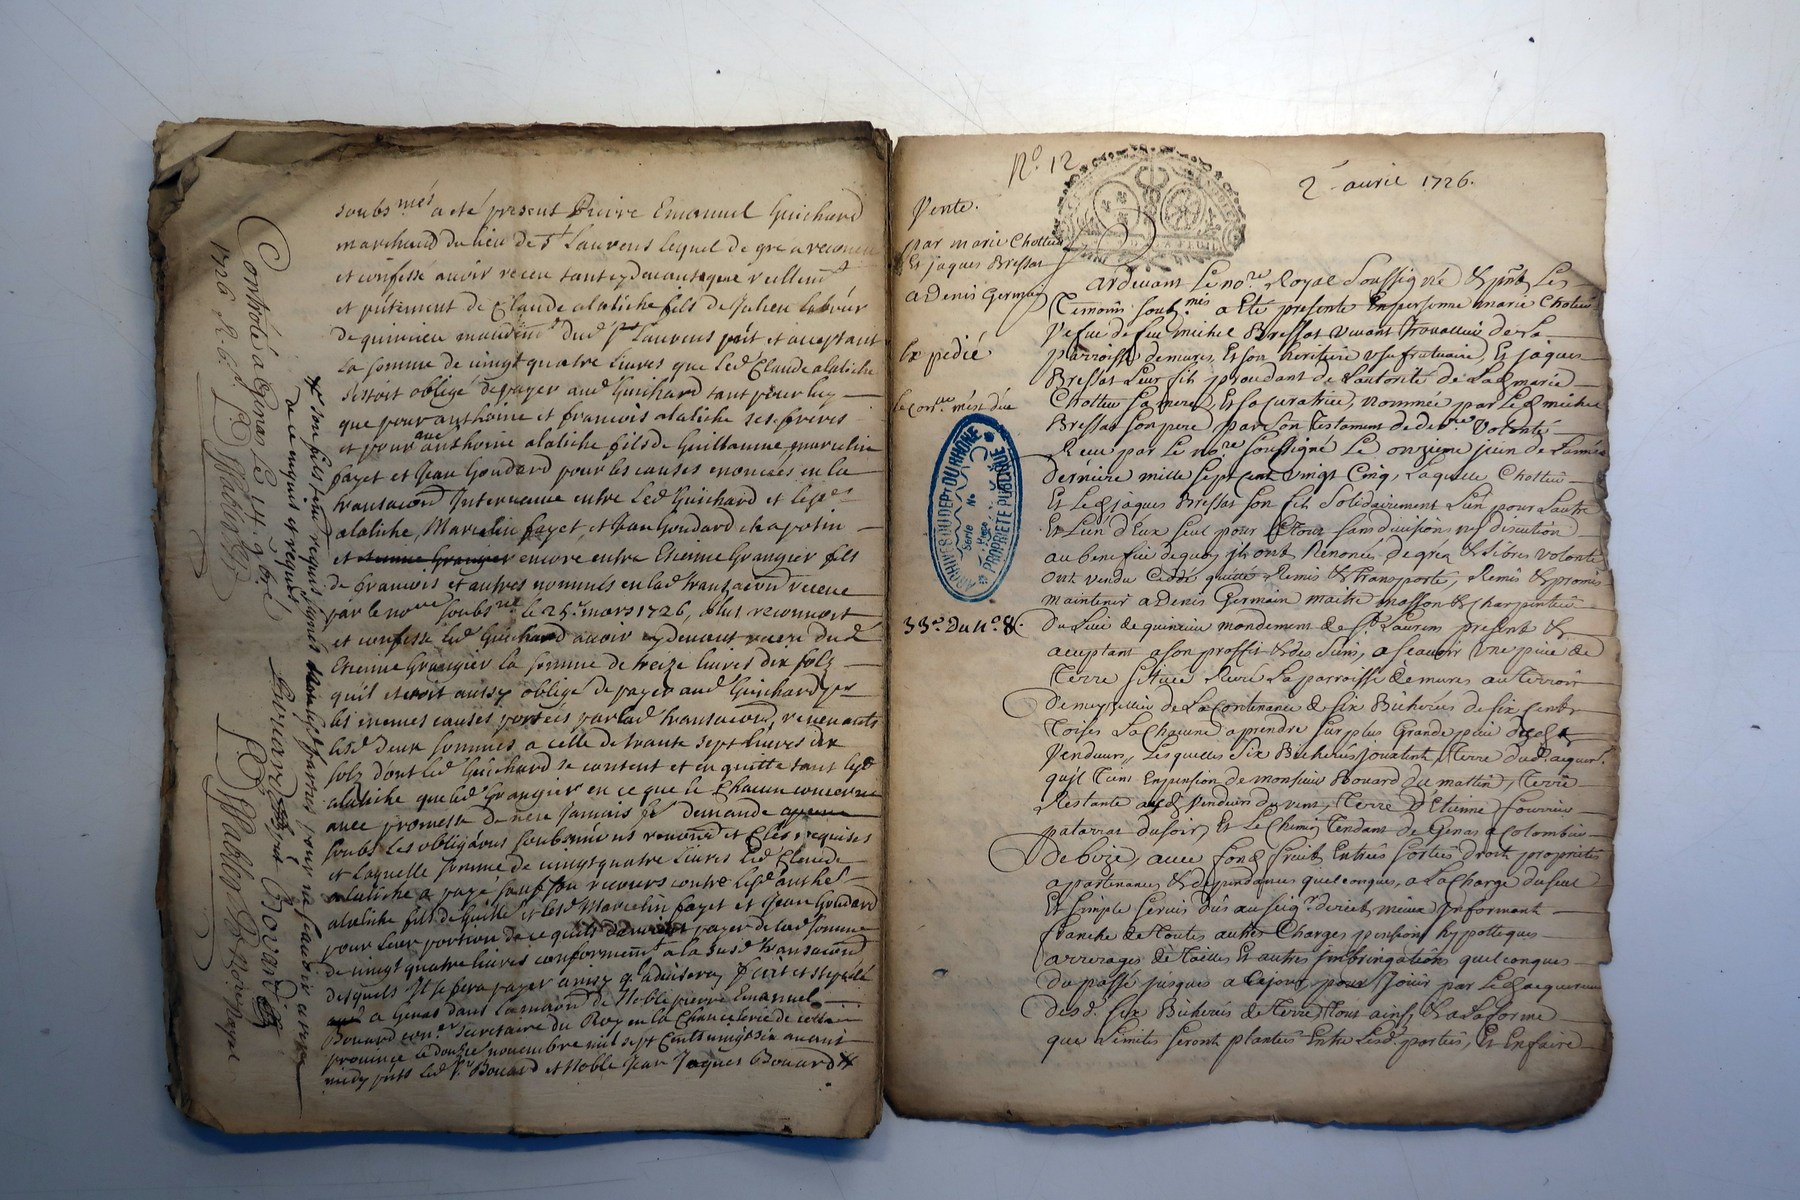 soubs.més a eté present Pierre Emanuel Guichard
marchand du lieu de St Laurens lequel de gre a reconeu
et confessé avoir receu tant cydevant que reellemt
et présement de Claude alatiche fils de Julien laboureur
de quinzieu mandemt dud. St Laurens pnt et aceptant
la somme de vingt quatre livres que led. Claude alatiche
s'estoit obligé de payer aud. Guichard tant pour luy
que pour anthoine et francois alatiche ses freres
et pour anthoine alatiche fils de Guillaume marcelin
fayet et Jean Goudard pour les causes enoncées en la
transacon Intervenue entre led. Guichard et lesd.
alatiche, Marcelin fayet, et Jean Goudard
et encore entre Etienne Grangier fils
de francois et autres nommés en lad. transacon receue
par le nore soubsné le 25e mars 1726, plus reconnoit
et confesse led. Guichard avoir cy devant receu dud.
Etienne Grangier la somme de treize livres dix solz
qu'il estoit aussy obligé de payer aud. Guichard par
les memes causes portées par lad. transacon, revenants
lesd. deux sommes a celle de trante sept livres dix
solz dont led. Guichard se content et en quitte tant led.
alatiche que led. Grangier en ce que le chacun concerne
avec promesse de n'en jamais fe demande
soubs les obligaons soubmions renonons et clses requises
et laquelle somme de vingt quatre livres led. Claude
alatiche a payé sauf son recours contre lesd. anthe
alatiche fils de Guille et lesd. Marcelin fayet et Jean Goudard
pour leur portion de ce quils payer de lad. somme
de vingt quatre livres conformemt a la susd. transacon
desquels Il se fera payer ainsy q. l'advisera, fait et stipulé
a Genas dans la maison de Noble pierre Emanuel
Bouard conr secretaire du Roy en la Chancelerie de cette
province le douze novembre mil sept cents vingt six avant
midy pnts led. Sr Bouard et Noble Jean Jaques Bouard
son fils temoins requis signés lesd. parties pour ne scavoir
de ce enquis et requis
Bouard
Controlé a Genas le
1726 R. 6 s.
Nore Royal
No 12
2e avril 1726.
Vente.
par marie Chollein
Et jaques Bressat
a Denis Germain
Expedié
le con.le m'est dû
ARCHIVES DU DEPt DU RHONE
Serie No
Page
PROPRIETE PUBLIQUE
33e. Du No. 8.
ardevant Le nore. Royal Soussigné & pnts Les
Temoins soubmés a Eté presente En personne marie Chollein
Vefve de feu michel Bressat vivant travailleur de la
parroisse demures, Et son heritiere usufrutuaire, Et jaques
Bressat Leur fils procedant de Lautorité de Lad. marie
Chollein Sa mere, Et Sa curatrice, nommée par Led. michel
Bressat Son pere, par Son Testament de dere. Volonté
Receu par Le nore. Soussigné Le onzieme juin de Lannée
derniere mille Sept cent vingt Cinq, Laquelle Chollein
Et Led. jaques Bressat Son fils Solidairement Lun pour Lautre
Et Lun d'Eux Seul pour Le Tout Sans division ny discution
au benefice dequoy ils ont Renoncé de gré & Libre volonté
ont vendu Cedé quitté Remis & transporté, Remis & promis
maintenir a Denis Germain maitre masson & charpentier
du Lieu de quinzieu mandement de St. Laurens present &
aceptant a son proffit & des Siens, a Scavoir une piece de
Terre Situéé Riere La parroisse demures au Terroir
de La Contenance de Six Bicherées de Six Cents
Toises La Chacune a prendre Sur plus Grande piece desd.
Vendeurs, Lesquelles Six Bicherées jouxtent Terre dud. acquer.
qu'jl Tient En pension de monsieur Bouard du mattin, Terre
Restante auxd. Vendeurs du vent, Terre d'Etienne fournier
patarrat du Soir, Et Le Chemin Tendant de Genas a Colombier
de bize, avec Fond fruit Entrées Sorties droit proprietés
apartenances & dependances quelconques, a La Charge du Seul
Et Simple Servis dûs au Seigr. direct mieux Informant
franche de Toutes autres Charges pensions hypotteques
arrerages de Tailles Et autres jmbringations quelconques
du passé jusques a Cejour, pour Jouir par Led. acquereur
desd. Six Bicherées de Terre Tout ainsy & a La forme
que Limites Seront plantées Entre Lesd. parties, Et En faire